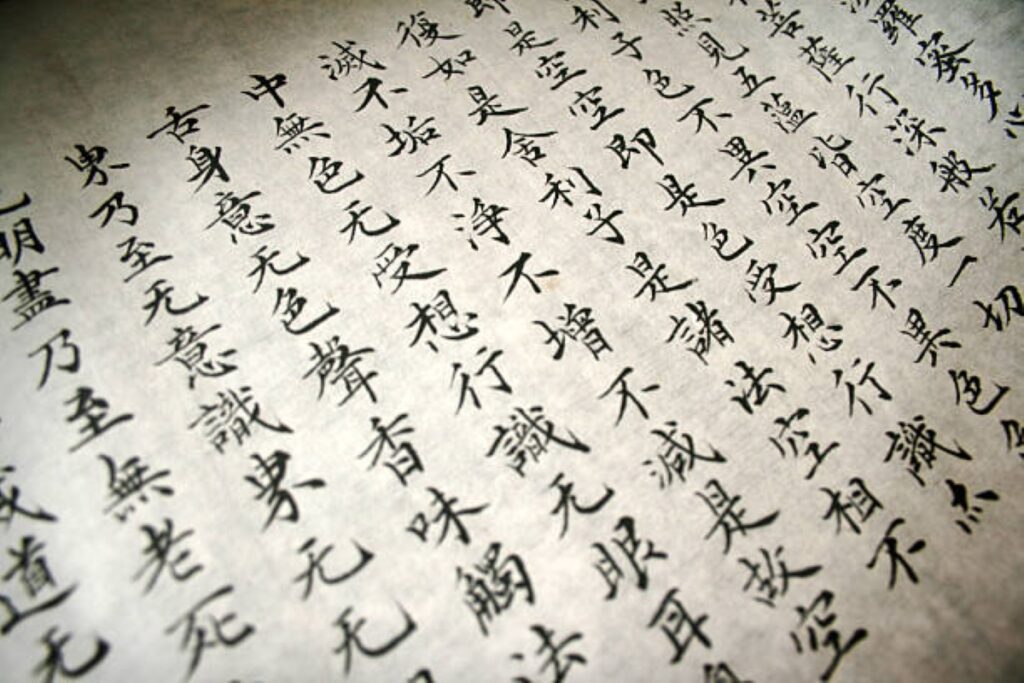 羅蜜多心
菩薩行深般若
照見五蘊皆空度一切
利子色不異空空不異色色
即是空空即是色受想行識亦
復如是舍利子是諸法空相不
滅不垢不淨不增不減是故空
中無色无受想行識无眼耳鼻
舌身意无色聲香味觸法
界乃至无意識界无无
无明盡乃至無老死
滅道无